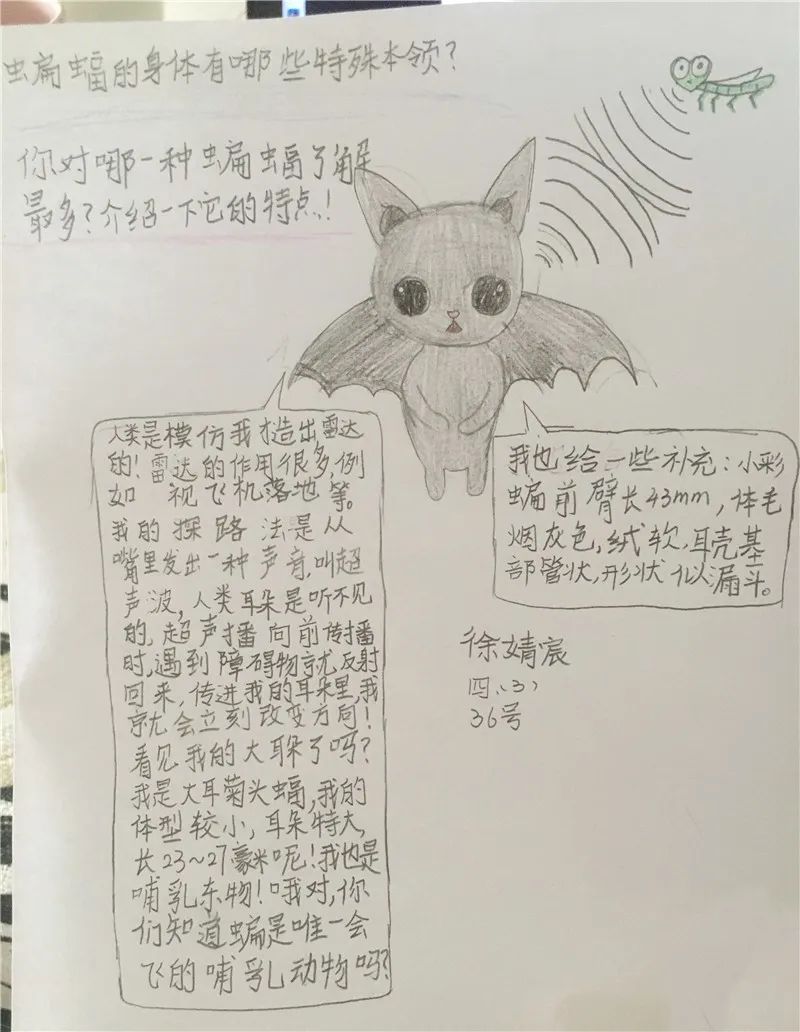 蝙蝠的身体有哪些特殊本领？
你对哪一种蝙蝠了解
最多？介绍一下它的特点！
人类是模仿我才造出雷达
的！雷达的作用很多，例
如 视飞机落地等。
我的探路法是从
嘴里发出一种声音，叫超
声波，人类耳朵是听不见
的，超声播向前传播
时，遇到障碍物就反射
回来，传进我的耳朵里，我
就会立刻改变方向！
看见我的大耳朵了吗？
我是大耳菊头蝠，我的
体型较小，耳朵特大，
长23~27毫米呢！我也是
哺乳东物！哦对，你
们知道蝙是唯一会
飞的哺乳动物吗？
我也给一些补充：小彩
蝙前臂长43mm，体毛
烟灰色，绒软，耳壳基
部管状，形状似漏斗。
徐婧宸
四（3）
36号